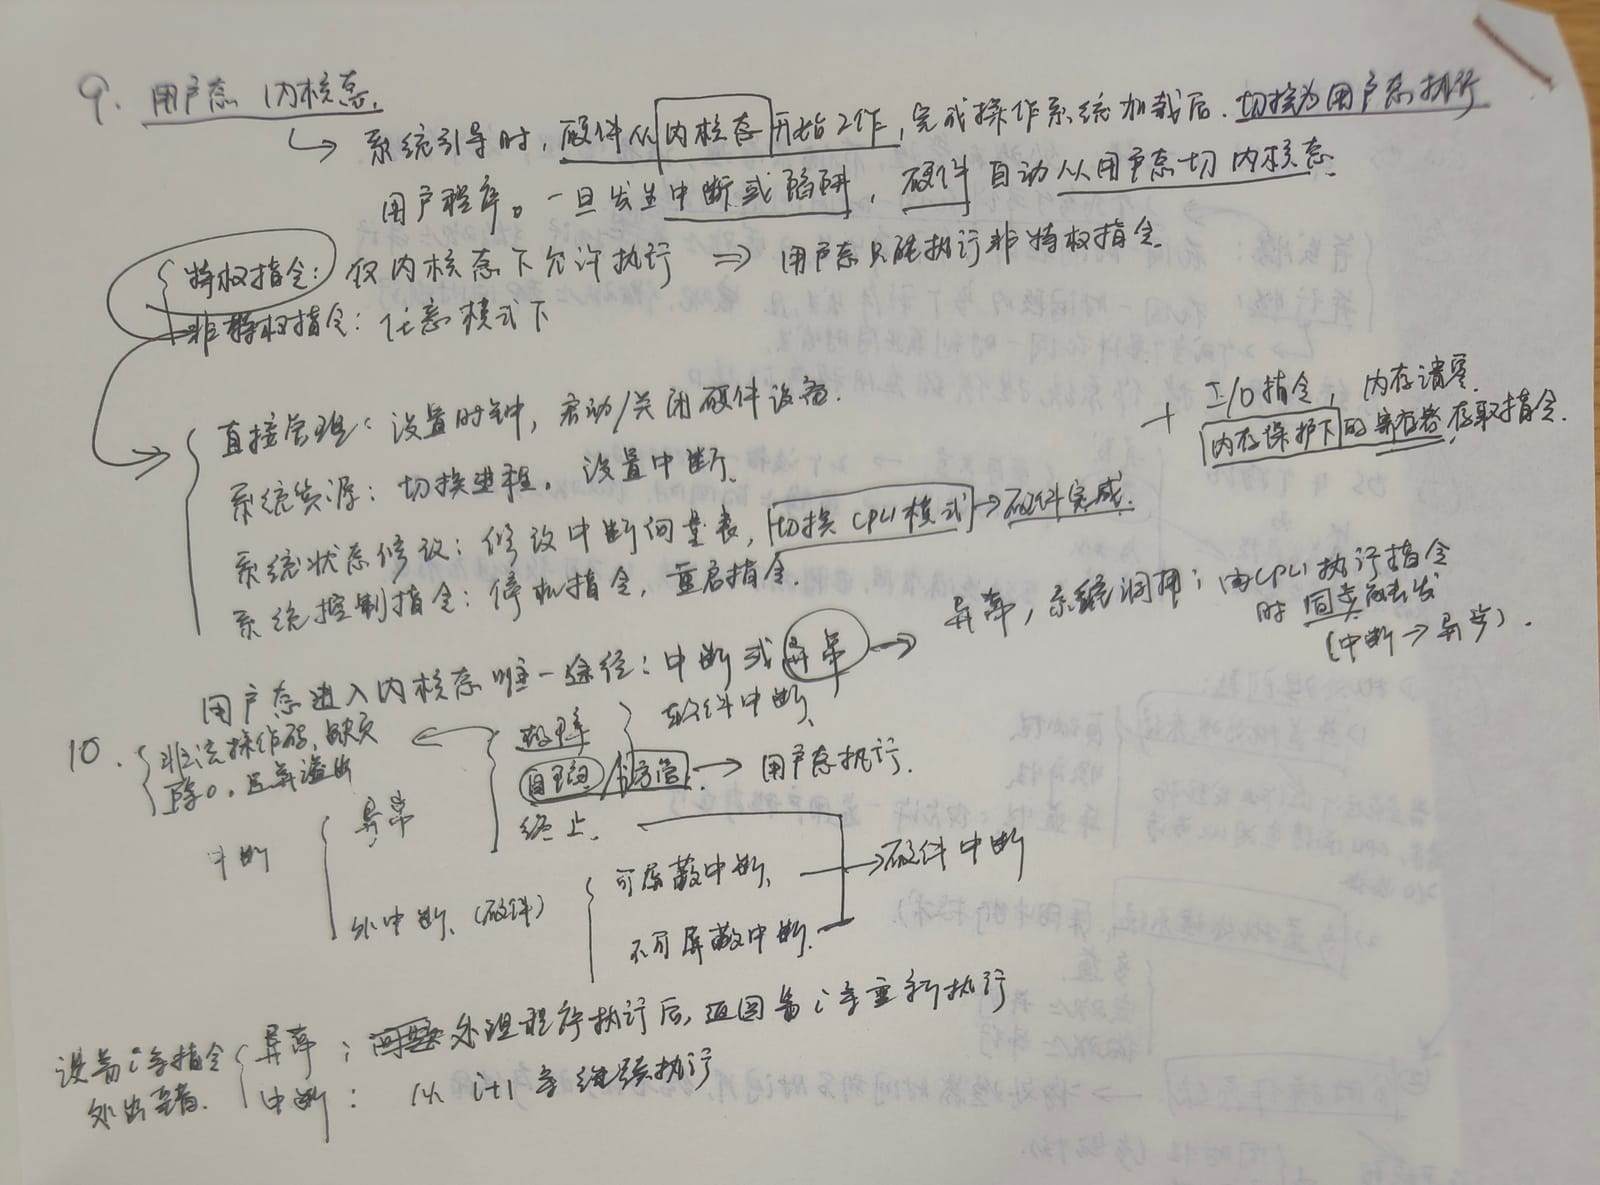 9. 用户态 内核态.
系统引导时, 硬件从内核态开始工作, 完成操作系统加载后. 切换为用户态执行
用户程序。一旦发生中断或陷阱, 硬件自动从用户态切内核态.
特权指令: 仅内核态下允许执行 ⇒ 用户态只能执行非特权指令.
非特权指令: 任意模式下
直接管理: 设置时钟, 启动/关闭硬件设备.
+ I/O指令, 内存清零.
内存保护下的寄存器存取指令.
系统资源: 切换进程. 设置中断.
系统状态修改: 修改中断向量表, 切换CPU模式 → 硬件完成.
系统控制指令: 停机指令, 重启指令.
用户态进入内核态唯一途径: 中断或异常 →
异常, 系统调用: 由CPU执行指令
时同步
(中断→异步).
10. 非法操作码, 缺页
除0, 运算溢出
中断
异常
故障
自陷/访管 → 用户态执行.
终止.
软件中断.
外中断. (硬件)
可屏蔽中断.
不可屏蔽中断.
→ 硬件中断
设第i条指令
处出
异常: 处理程序执行后, 返回第i条重新执行
中断: 从 i+1 条继续执行